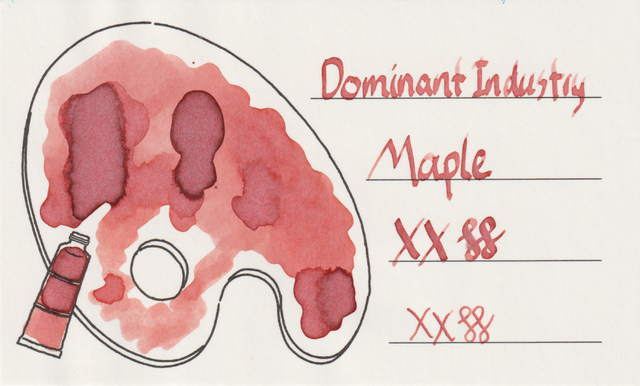 Dominant Industry
Maple
XX
XX